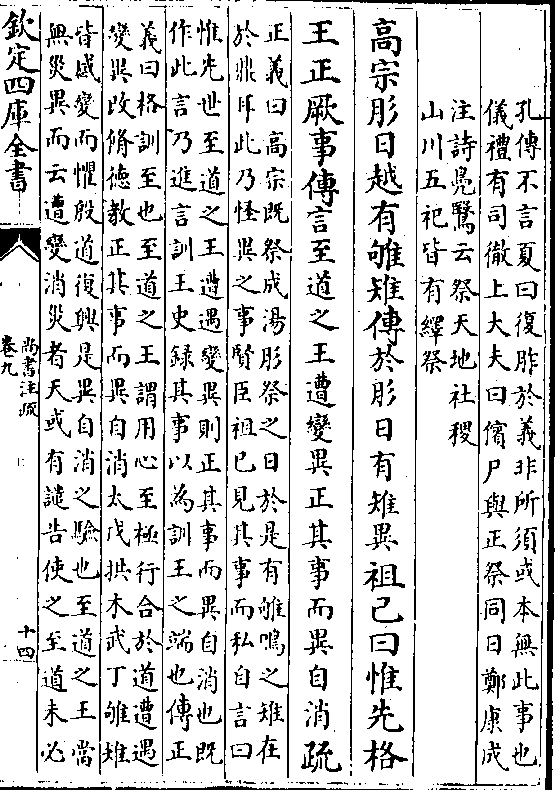 孔傳不言夏曰復胙於義非所須或本無此事也
儀禮有司徹上大夫曰儐尸與正祭同日鄭康成
注詩鳧鷖云祭天地社稷
山川五祀皆有繹祭
高宗肜日越有雊雉傳於肜日有雉異祖己曰惟先格
王正厥事傳言至道之王遭變異正其事而異自消疏
正義曰高宗既祭成湯肜祭之日於是有雊鳴之雉在
於鼎耳此乃怪異之事賢臣祖己見其事而私自言曰
惟先世至道之王遭遇變異則正其事而異自消也既
作此言乃進言訓王史錄其事以為訓王之端也傳正
義曰格訓至也至道之王謂用心至極行合於道遭遇
變異改脩德教正其事而異自消太戊拱木武丁雊雉
皆感變而懼殷道復興是異自消之驗也至道之王當
無災異而云遭變消災者天或有譴告使之至道未必
欽定四庫全書
尚書注疏
卷九
十四